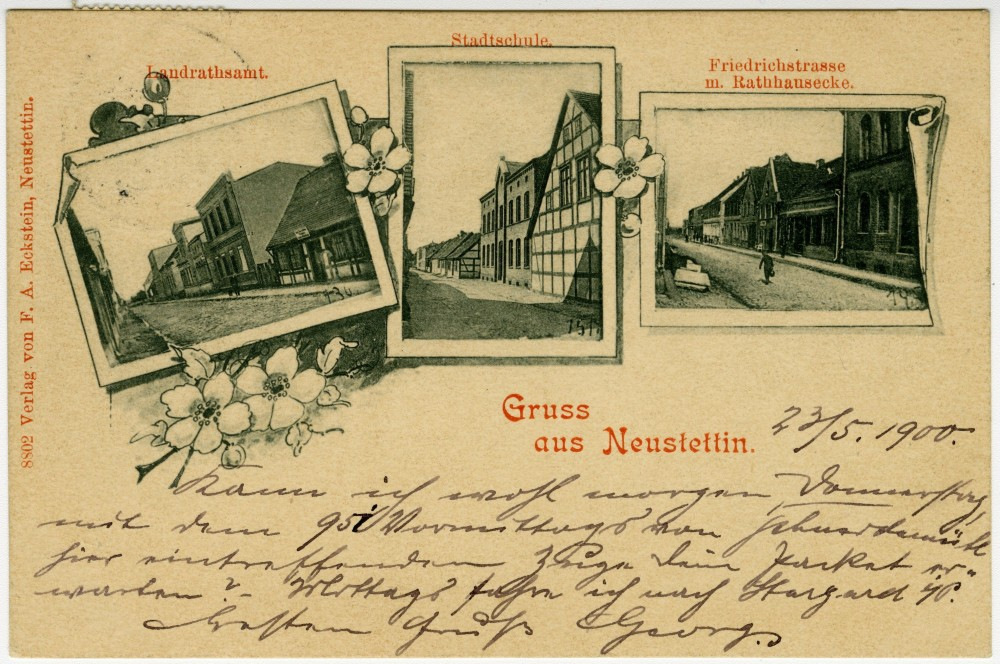 Landrathsamt.
Stadtschule.
Friedrichstrasse
m. Rathhausecke.
8802 Verlag von F. A. Eckstein, Neustettin.
Gruss
aus Neustettin.
23/5. 1900.
Kann ich wohl morgen, Donnerstag,
mit dem 951 Vormittags von Schneidemühl
hier eintreffenden Zuge Dein Packet er-
warten? - Mittags fahre ich nach Stargard
Besten Gruß Georg.